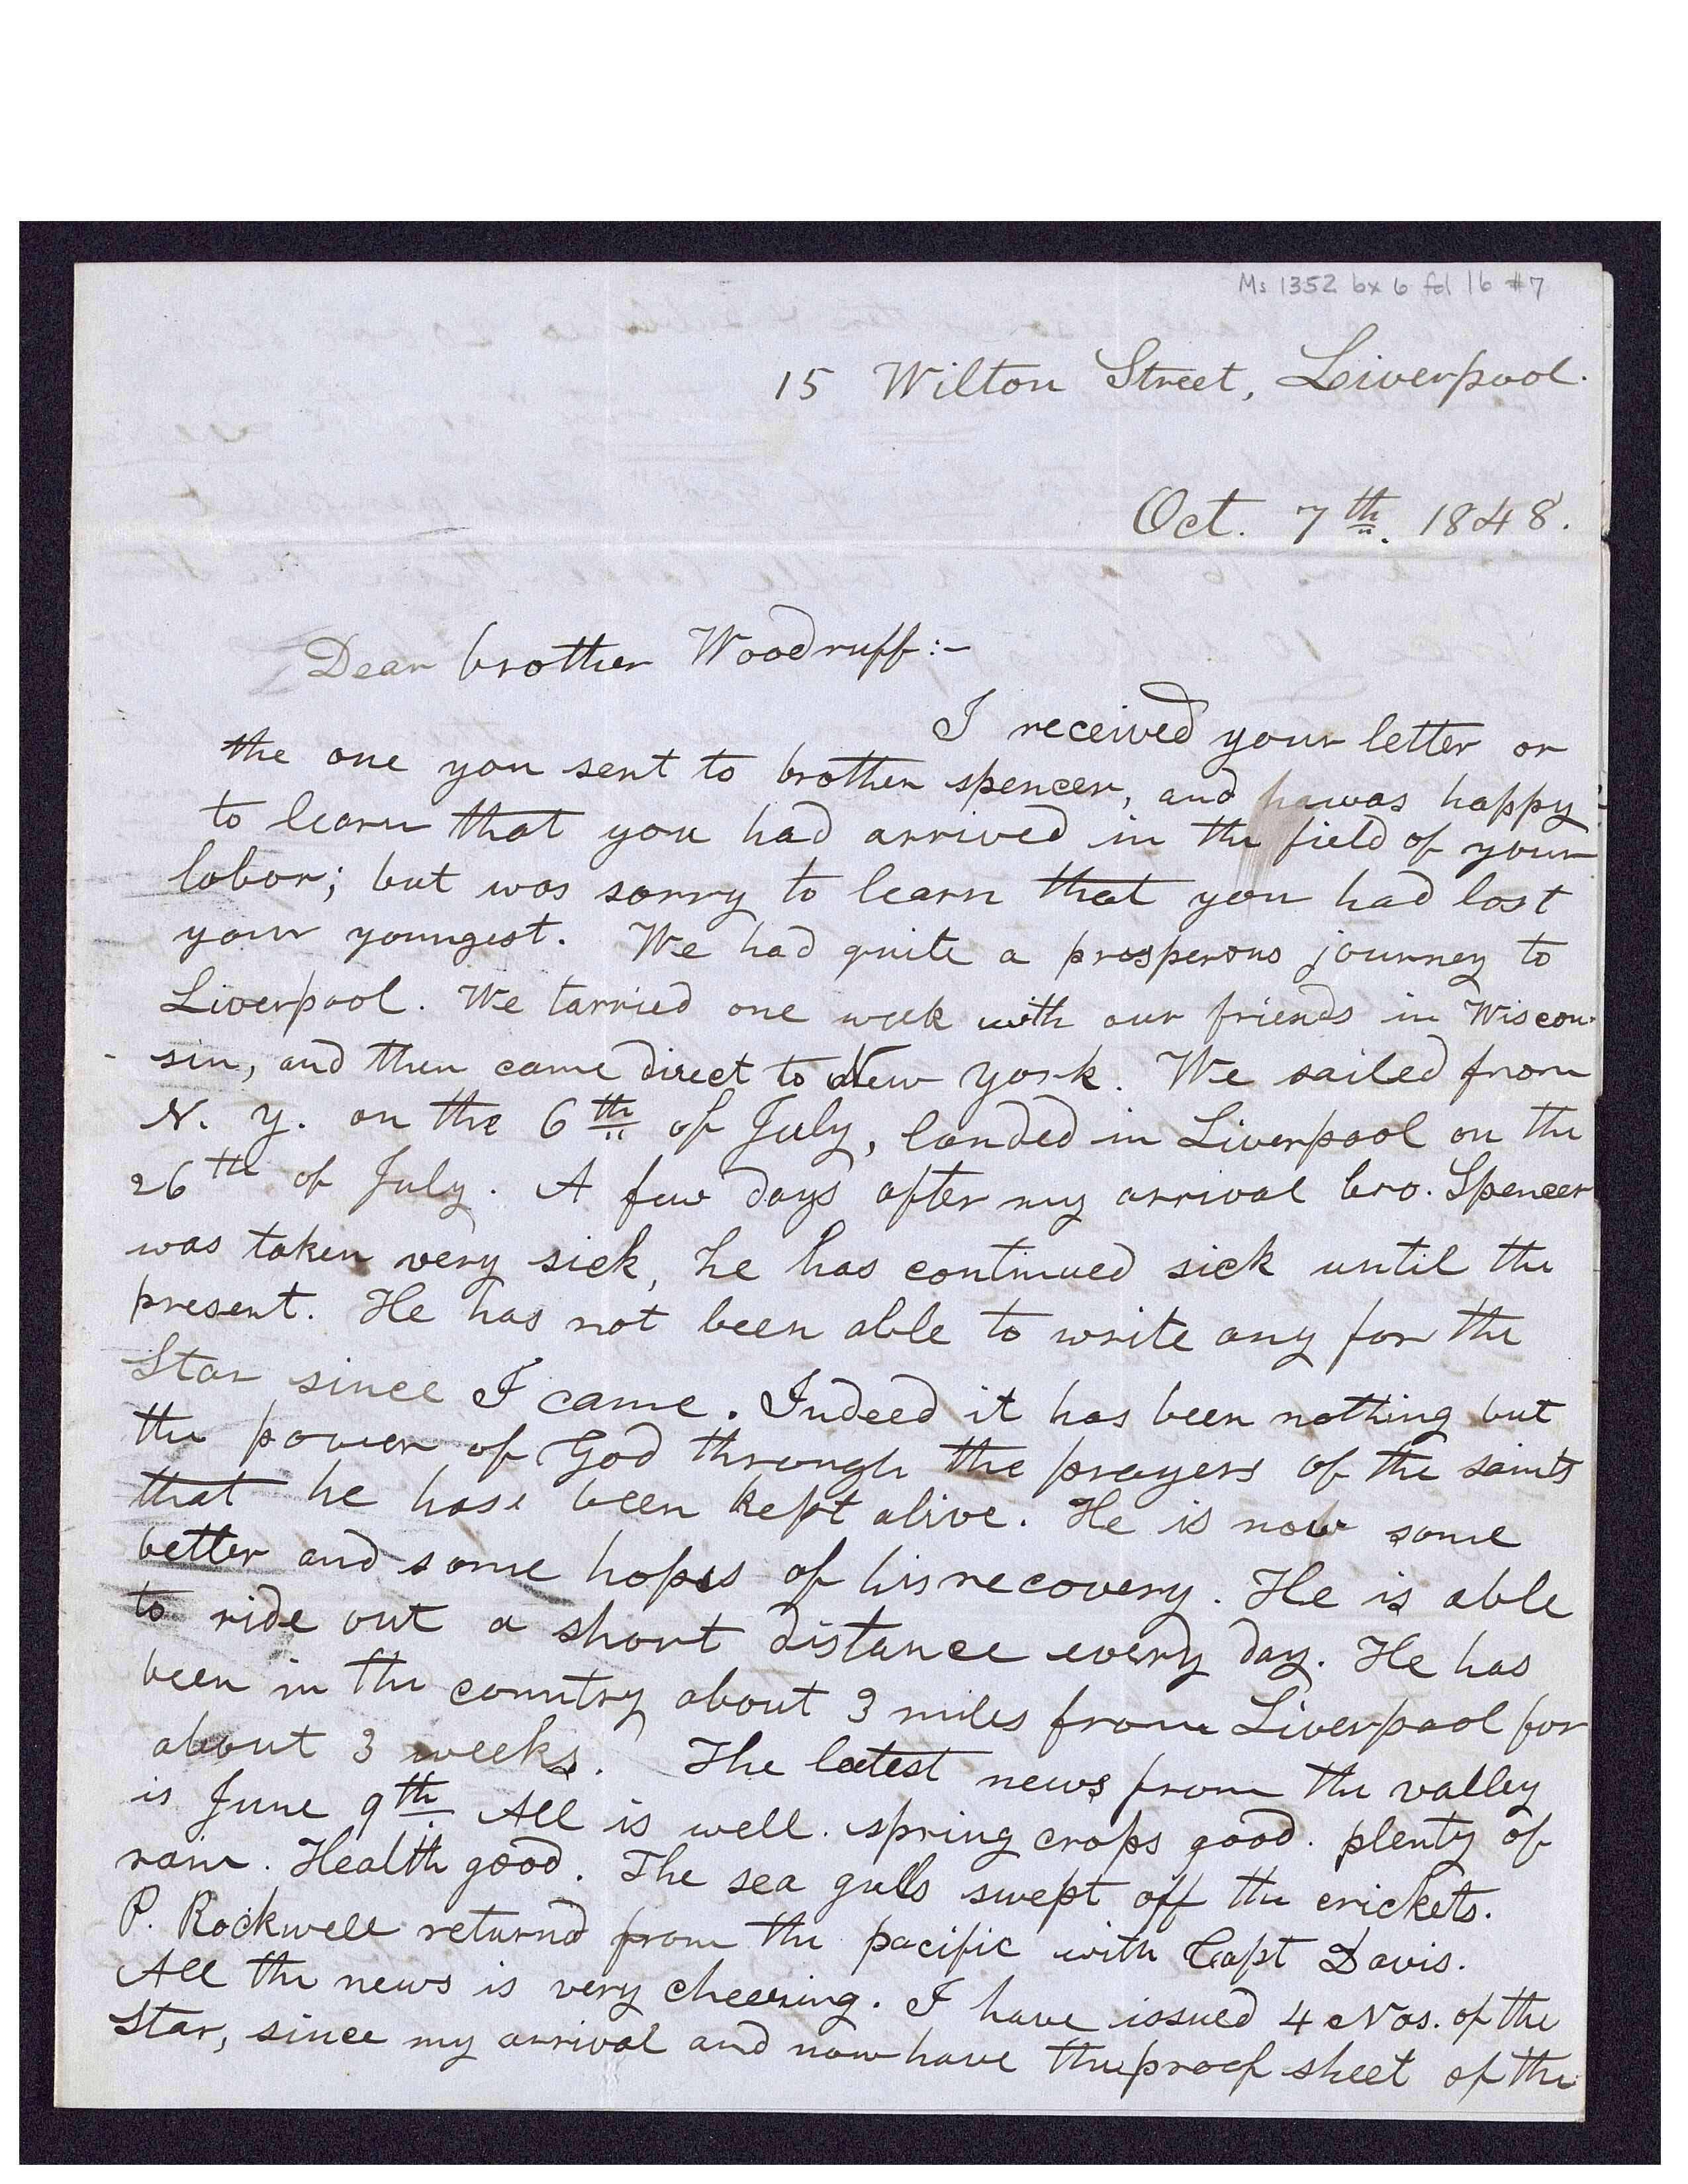 Ms 1352 bx 6 fd 16 #7
15 Wilton Street, Liverpool.
Oct. 7th. 1848.
Dear brother Woodruff:-
I received your letter or
the one you sent to brother spencer, and was happy
to learn that you had arrived in the field of your
labor; but was sorry to learn that you had lost
your youngest. We had quite a prosperous journey to
Liverpool. We tarried one week with our friends in Wiscon-
-sin, and then came direct to New York. We sailed from
N. Y. on the 6th of July, landed in Liverpool on the
26th of July. A few days after my arrival bro. Spencer
was taken very sick, he has continued sick until the
present. He has not been able to write any for the
Star since I came. Indeed it has been nothing but
the power of God through the prayers of the saints
that he has been kept alive. He is now some
better and some hopes of his recovery. He is able
to ride out a short distance every day. He has
been in the country about 3 miles from Liverpool for
about 3 weeks. The latest news from the valley
is June 9th. All is well. spring crops good. plenty of
rain. Health good. The sea gulls swept off the crickets.
P. Rockwell returnd from the pacific with Capt Davis.
All the news is very cheering. I have issued 4 Nos. of the
Star, since my arrival and now have the proof sheet of the